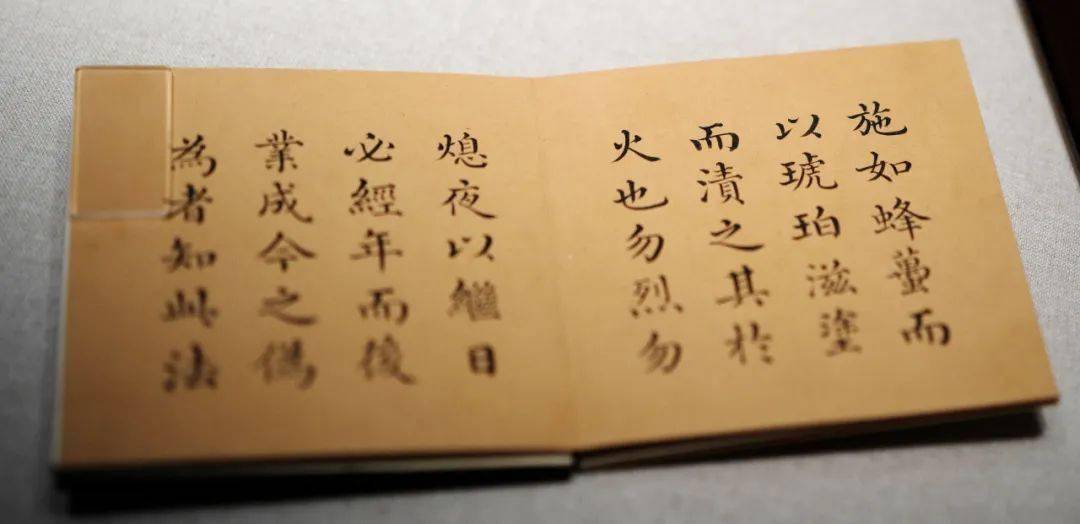 施如蜂蠆而
以琥珀滋塗
而漬之其於
火也勿烈勿
熄夜以繼日
必經年而後
業成今之偽
為者知此法